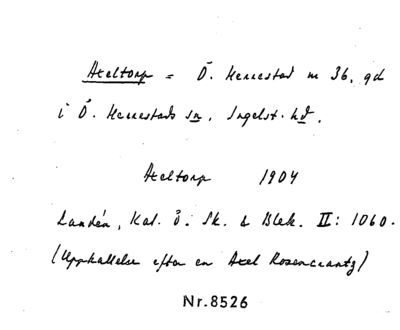 Axeltorp = Ö. Herrestad nr 36, gd
i Ö. Herrestads sn, Ingelst. hd.
Axeltorp 1904
Landén, Kal. ö. Sk. & Blek. II: 1060.
(Uppkallelse efter en Axel Rosencrantz)
Nr. 8526